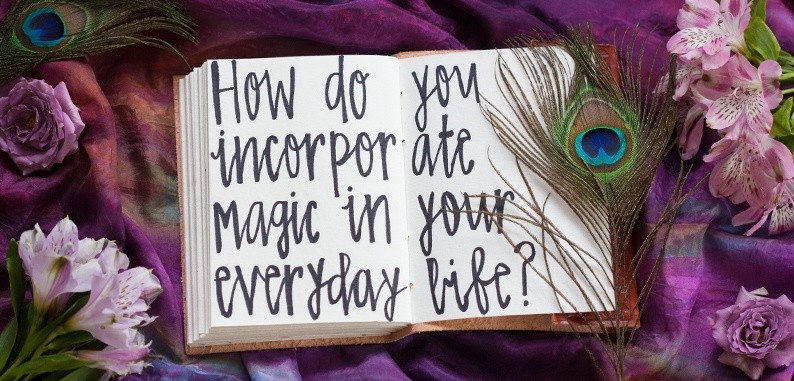 How do you
incorporate
magic in your
everyday life?